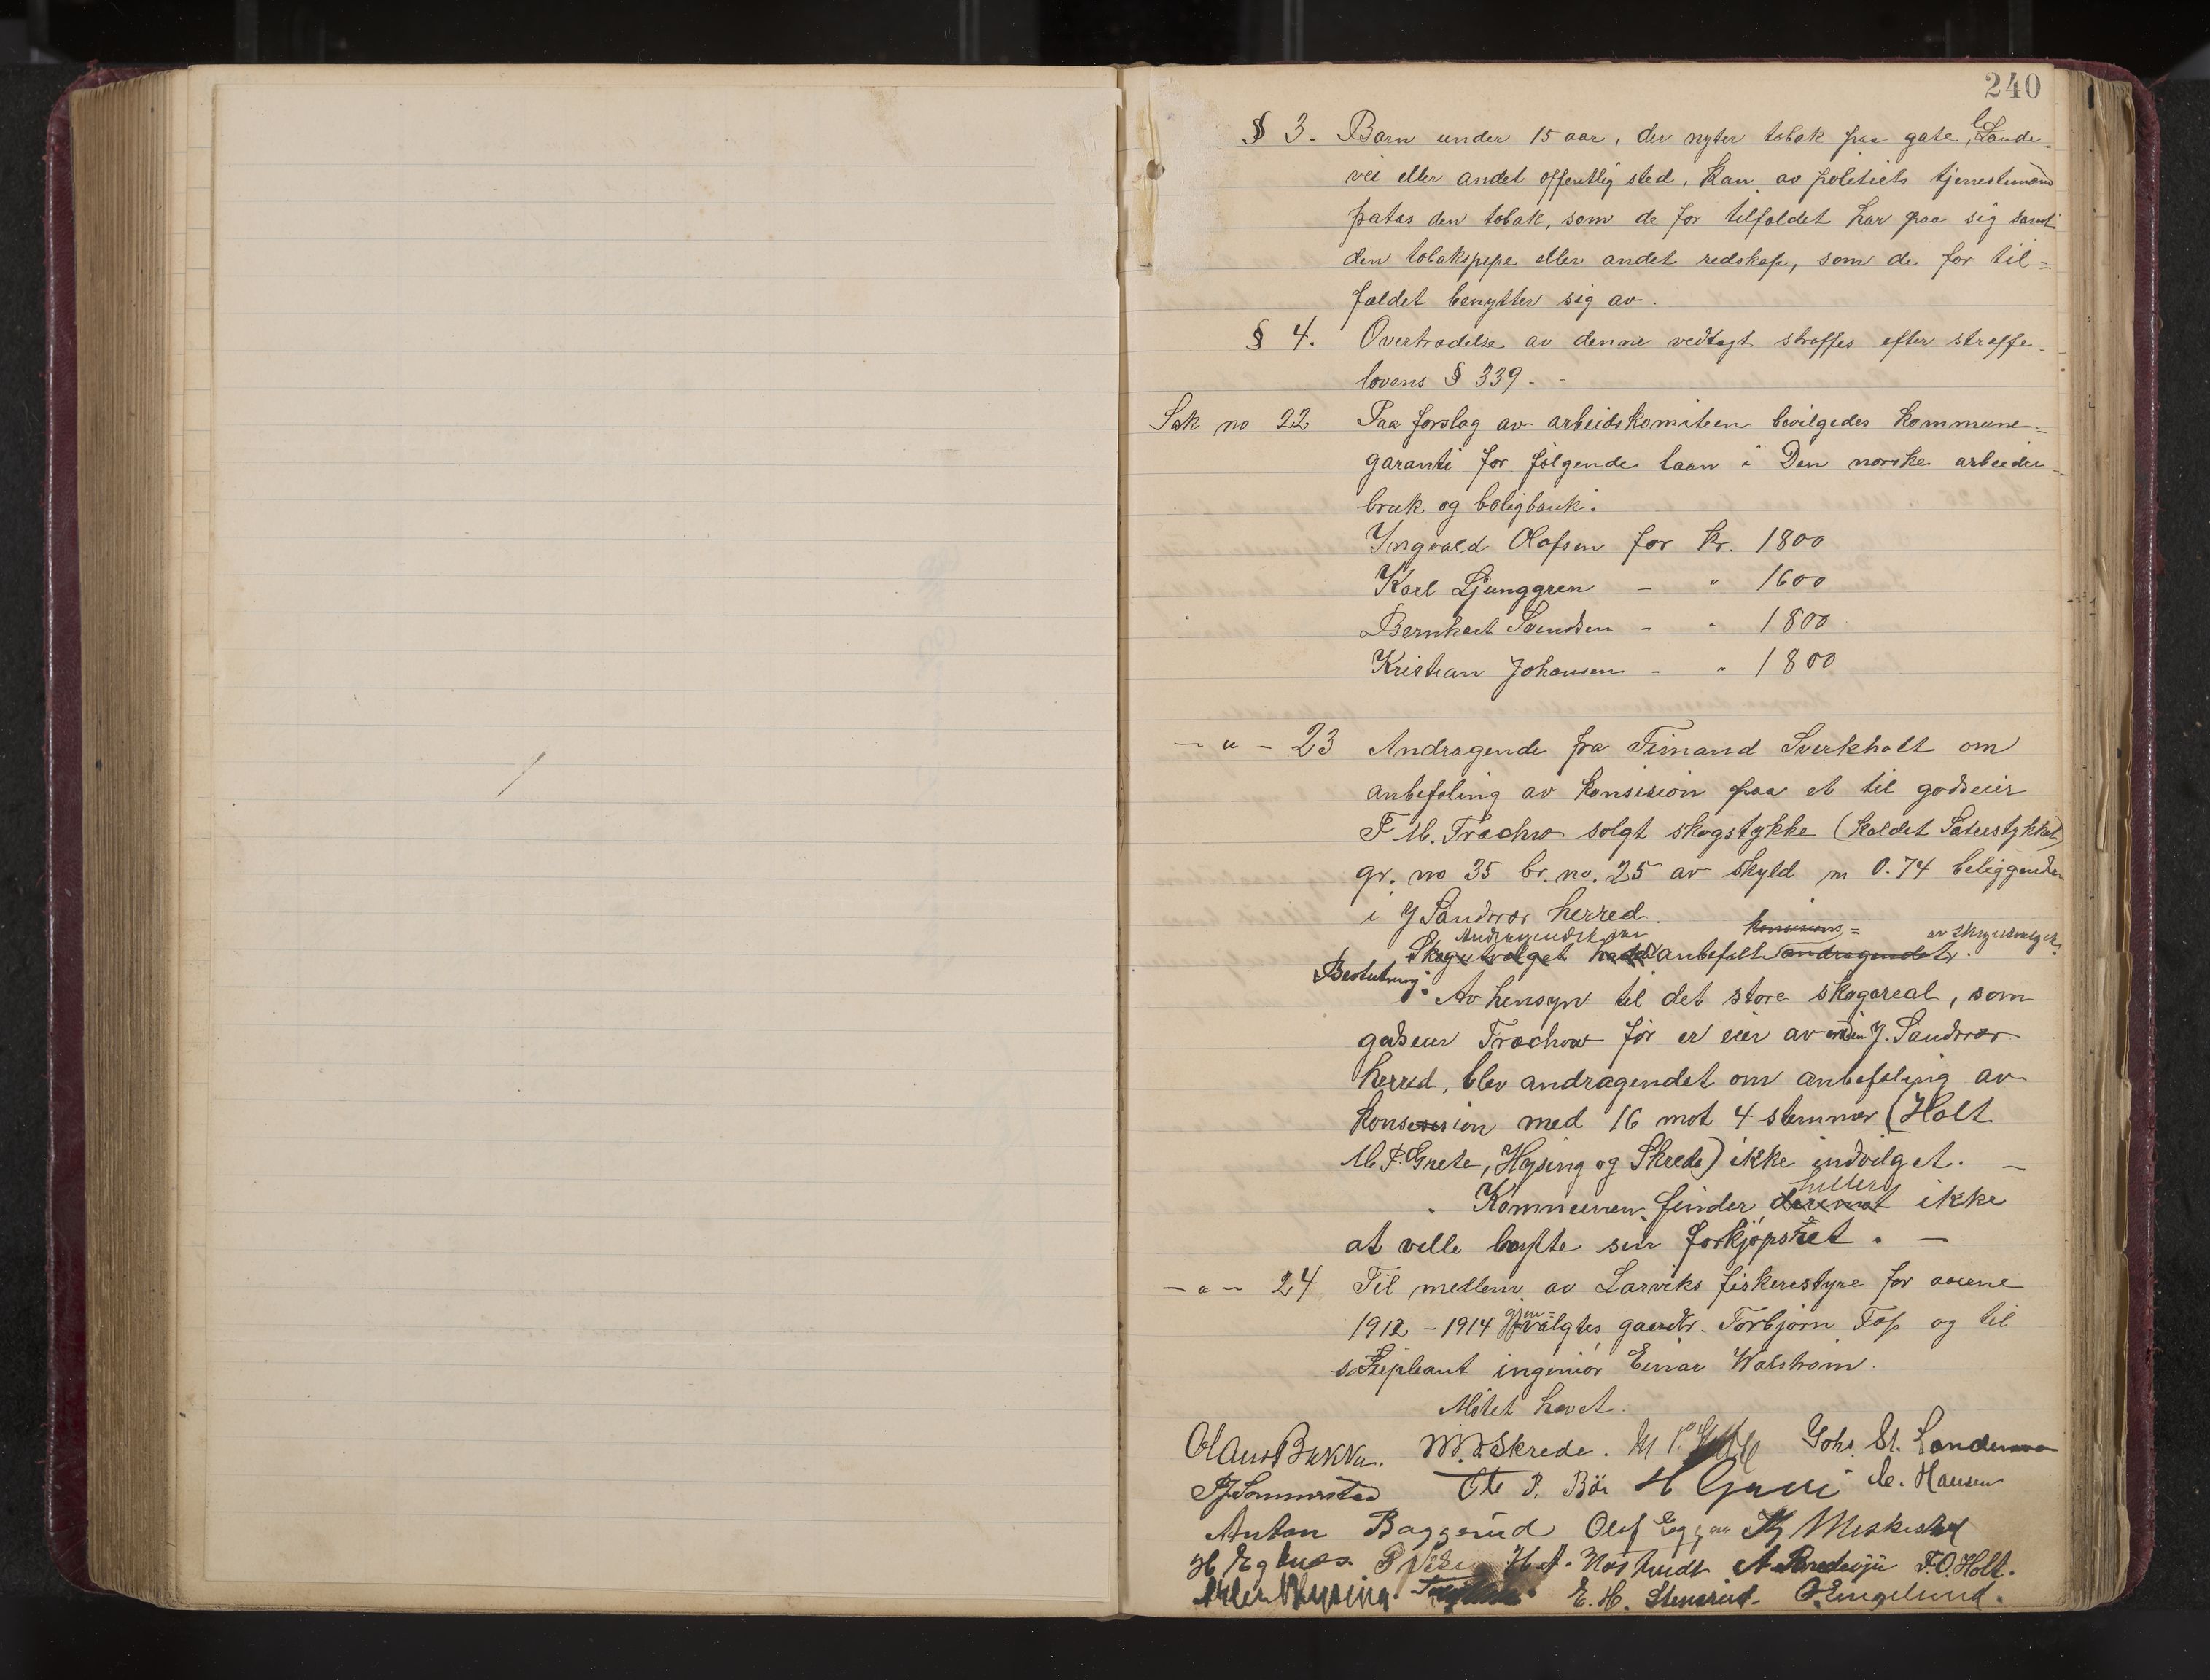 240
§ 3. Barn under 15 aar, der nyter tobak paa gate, lande-
vei eller andet offentlig sted, kan av politiets tjenestemænd
fratas den tobak, som de for tilfældet har paa sig samt
den tobakspipe eller andet redskap, som de for til=
fældet benytter sig av.
§ 4. Overtrædelse av denne vedtægt straffes efter straffe-
lovens § 339. -
Sak no 22 Paa forslag av arbeidskomiteen bevilgedes kommune=
garanti for følgende laan i Den norske arbeider-
bruk og boligbank:
Yngvald Olafsen for kr. 1800
Karl Ljunggren - " 1600
Bernhart Svendsen - " 1800
Kristian Johansen - " 1800
- " - 23 Andragende fra Finand Sverkholt om
anbefaling av konsision paa et til godseier
F. M. Træchow solgt skogstykke (kaldet Sæterstykket)
gr. no 35 br. no. 25 av skyld m 0.74 beliggende
i Y Sandsvær herred.
Andragendet var konsesions= av skogutvalget
Skogutvalget hadde anbefalt andragendet.
Beslutning: Av hensyn til det store skogareal, som
godseier Træchow før er eier av inden Y. Sandsvær
herred, blev andragendet om anbefaling av
konsesion med 16 mot 4 stemmer (Holt
M. P. Grette, Hysing og Skrede) ikke indvilget. -
heller
Kommunen finder derimot ikke
at ville benytte sin forkjøpsret. -
- " - 24 Til medlem av Larviks fiskeristyre for aarene
gjen=
1912 - 1914 valgtes gaardbr. Torbjørn Fos og til
suppleant ingeniør Einar Walstrøm.
Møtet hævet.
Olaus Bakka. M. Skrede. M P. Johs. St. Sanderm
Sommerstad Ole P. Bøe H C. Hansen
Anton Baggerud Olaf Eggar
H. Eg H. A. A. Bredesju F. O. Holt.
Hysing. E. H. Stensrud. O. Engelund.